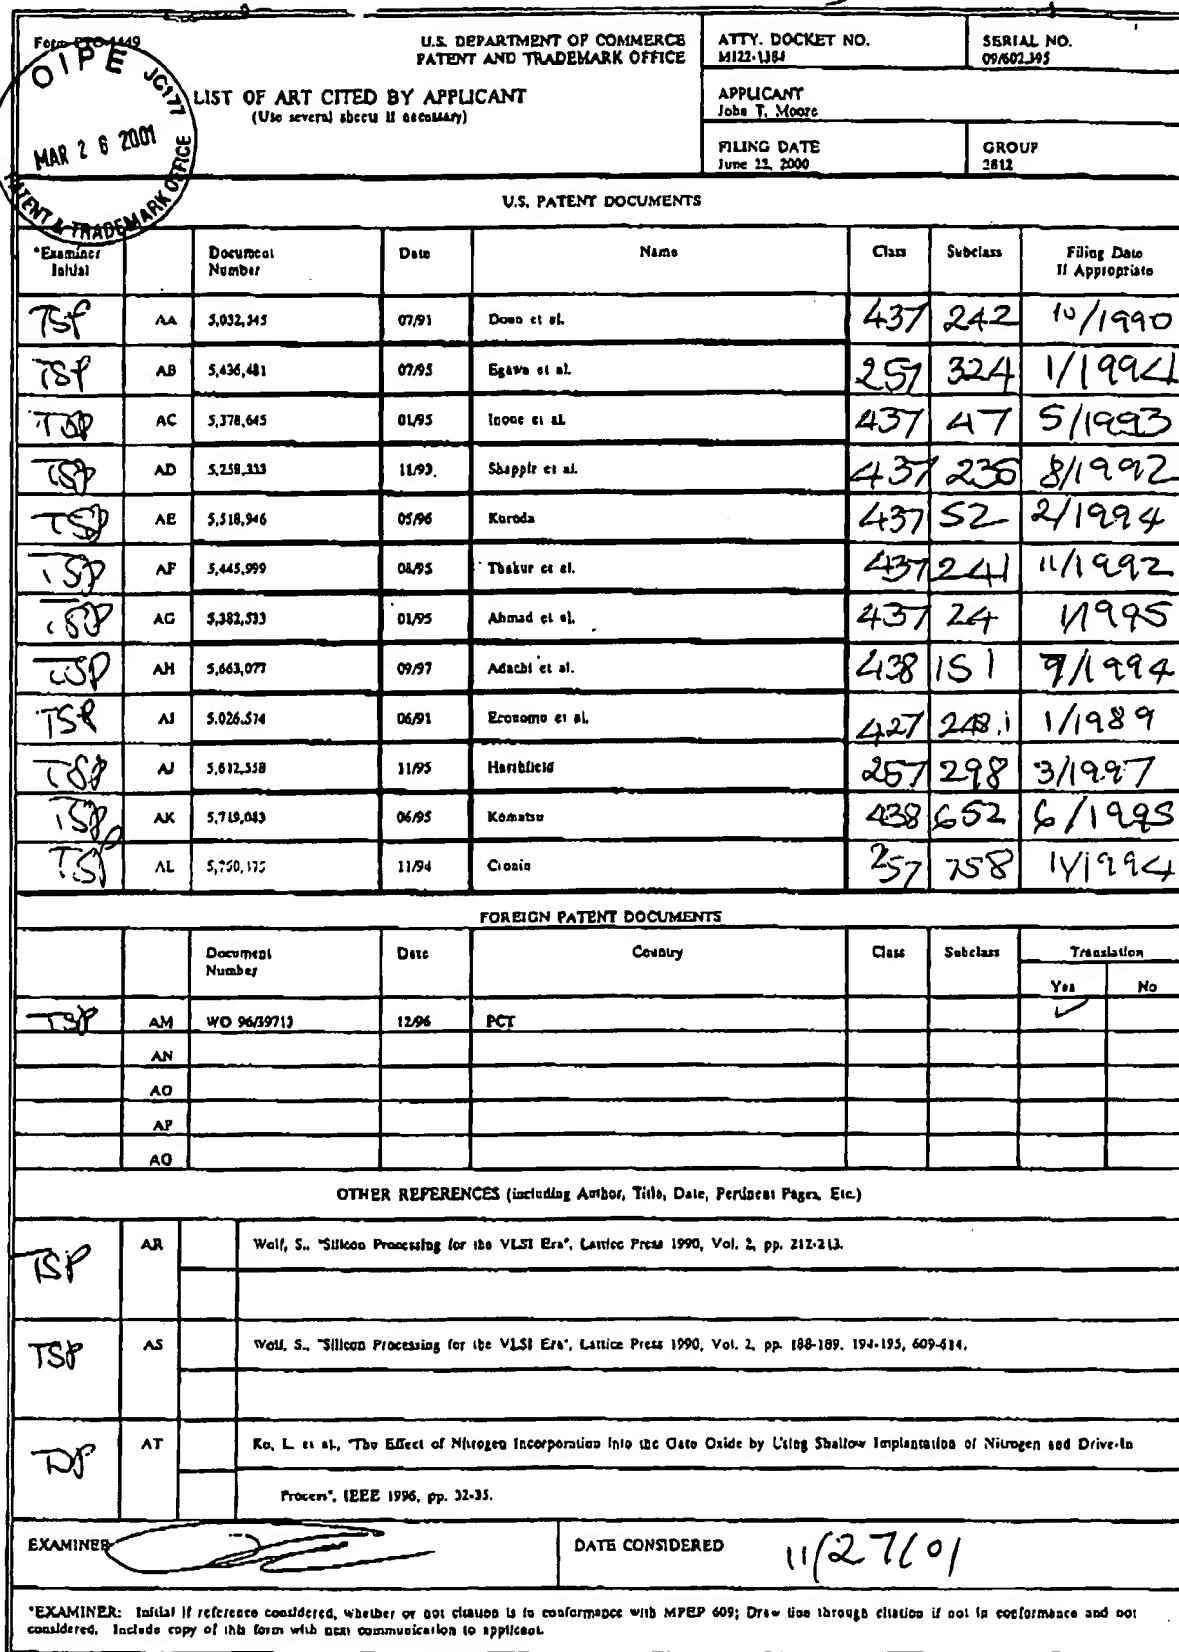 Form PTO-1449
U.S. DEPARTMENT OF COMMERCE
PATENT AND TRADEMARK OFFICE
ATTY. DOCKET NO.
MI22-1384
SERIAL NO.
09/602,395
OIPE JC177
MAR 26 2001
PATENT & TRADEMARK OFFICE
LIST OF ART CITED BY APPLICANT
(Use several sheets if necessary)
APPLICANT
John T. Moore
FILING DATE
June 22, 2000
GROUP
2812
U.S. PATENT DOCUMENTS
*Examiner Initial Document Number Date Name Class Subclass Filing Date If Appropriate
TSP AA 5,032,545 07/91 Doan et al. 437 242 10/1990
TSP AB 5,436,481 07/95 Egawa et al. 257 324 1/1994
TSP AC 5,378,645 01/95 Inoue et al. 437 47 5/1993
TSP AD 5,258,333 11/93 Shappir et al. 437 235 8/1992
TSP AE 5,518,946 05/96 Kuroda 437 52 2/1994
TSP AF 5,445,999 08/95 Thakur et al. 437 241 11/1992
TSP AG 5,382,533 01/95 Ahmad et al. 437 24 1/1995
TSP AH 5,663,077 09/97 Adachi et al. 438 151 9/1994
TSP AI 5,026,574 06/91 Economu et al. 427 248.1 1/1989
TSP AJ 5,612,558 11/95 Harshfield 257 298 3/1997
TSP AK 5,719,083 06/95 Komatsu 438 652 6/1995
TSP AL 11/94 Cronin 257 758 11/1994
FOREIGN PATENT DOCUMENTS
Document Number Date Country Class Subclass Translation
Yes No
TSP AM WO 96/39713 12/96 PCT ✓
AN
AO
AP
AQ
OTHER REFERENCES (including Author, Title, Date, Pertinent Pages, Etc.)
TSP AR Wolf, S., "Silicon Processing for the VLSI Era", Lattice Press 1990, Vol. 2, pp. 212-213.
TSP AS Wolf, S., "Silicon Processing for the VLSI Era", Lattice Press 1990, Vol. 2, pp. 188-189, 194-195, 609-614.
TSP AT Ko, L. et al., "The Effect of Nitrogen Incorporation into the Gate Oxide by Using Shallow Implantation of Nitrogen and Drive-In
Process", IEEE 1996, pp. 32-35.
EXAMINER DATE CONSIDERED 11/27/01
*EXAMINER: Initial if reference considered, whether or not citation is in conformance with MPEP 609; Draw line through citation if not in conformance and not
considered. Include copy of this form with next communication to applicant.